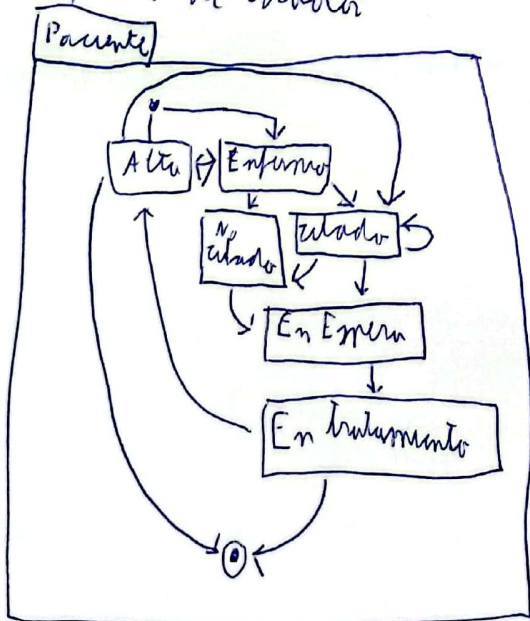 Paciente
Alta
Enfermo
No
citado
citado
En Espera
En tratamiento